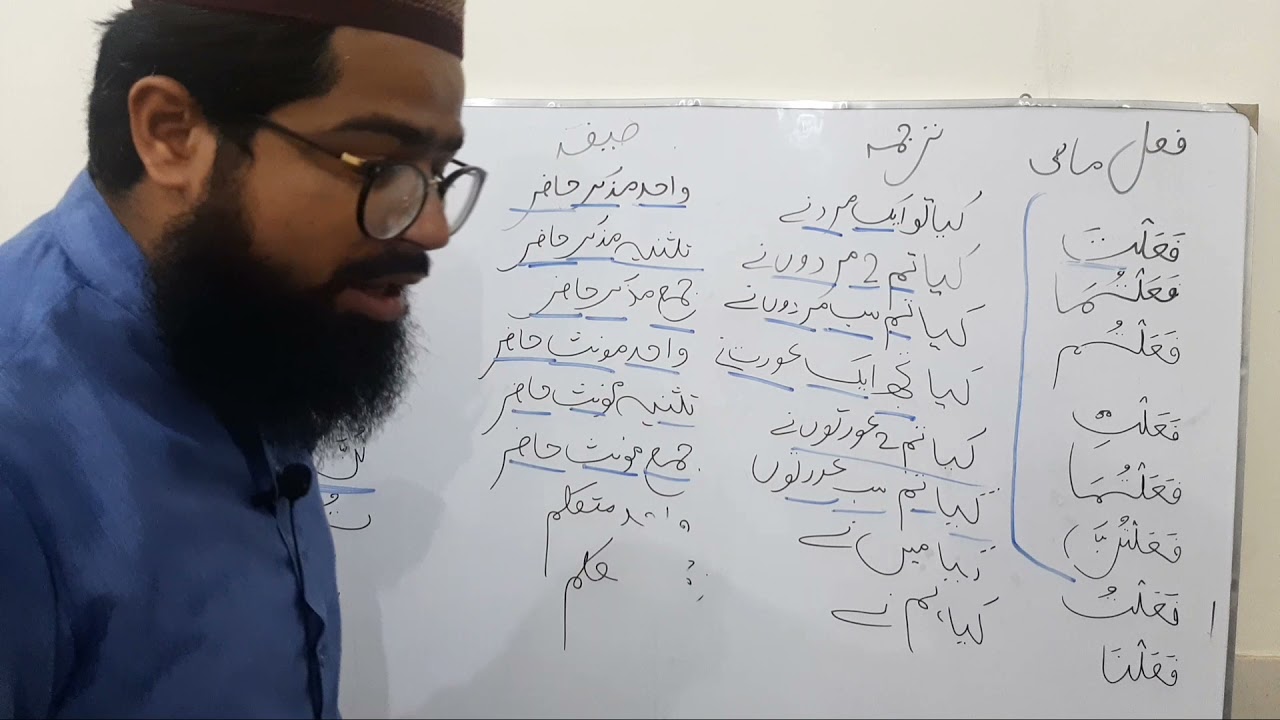 فعل ماضی ترجمہ صیغہ
فَعَلْتَ کیا تو ایک مرد نے واحد مذکر حاضر
فَعَلْتُمَا کیا تم 2 مردوں نے تثنیہ مذکر حاضر
فَعَلْتُم کیا تم سب مردوں نے جمع مذکر حاضر
فَعَلْتِ کیا تجھ ایک عورت نے واحد مونث حاضر
فَعَلْتُمَا کیا تم 2 عورتوں نے تثنیہ مونث حاضر
فَعَلْتُنَّ کیا تم سب عورتوں جمع مونث حاضر
فَعَلْتُ کیا میں نے واحد متکلم
فَعَلْنَا کیا، ہم نے